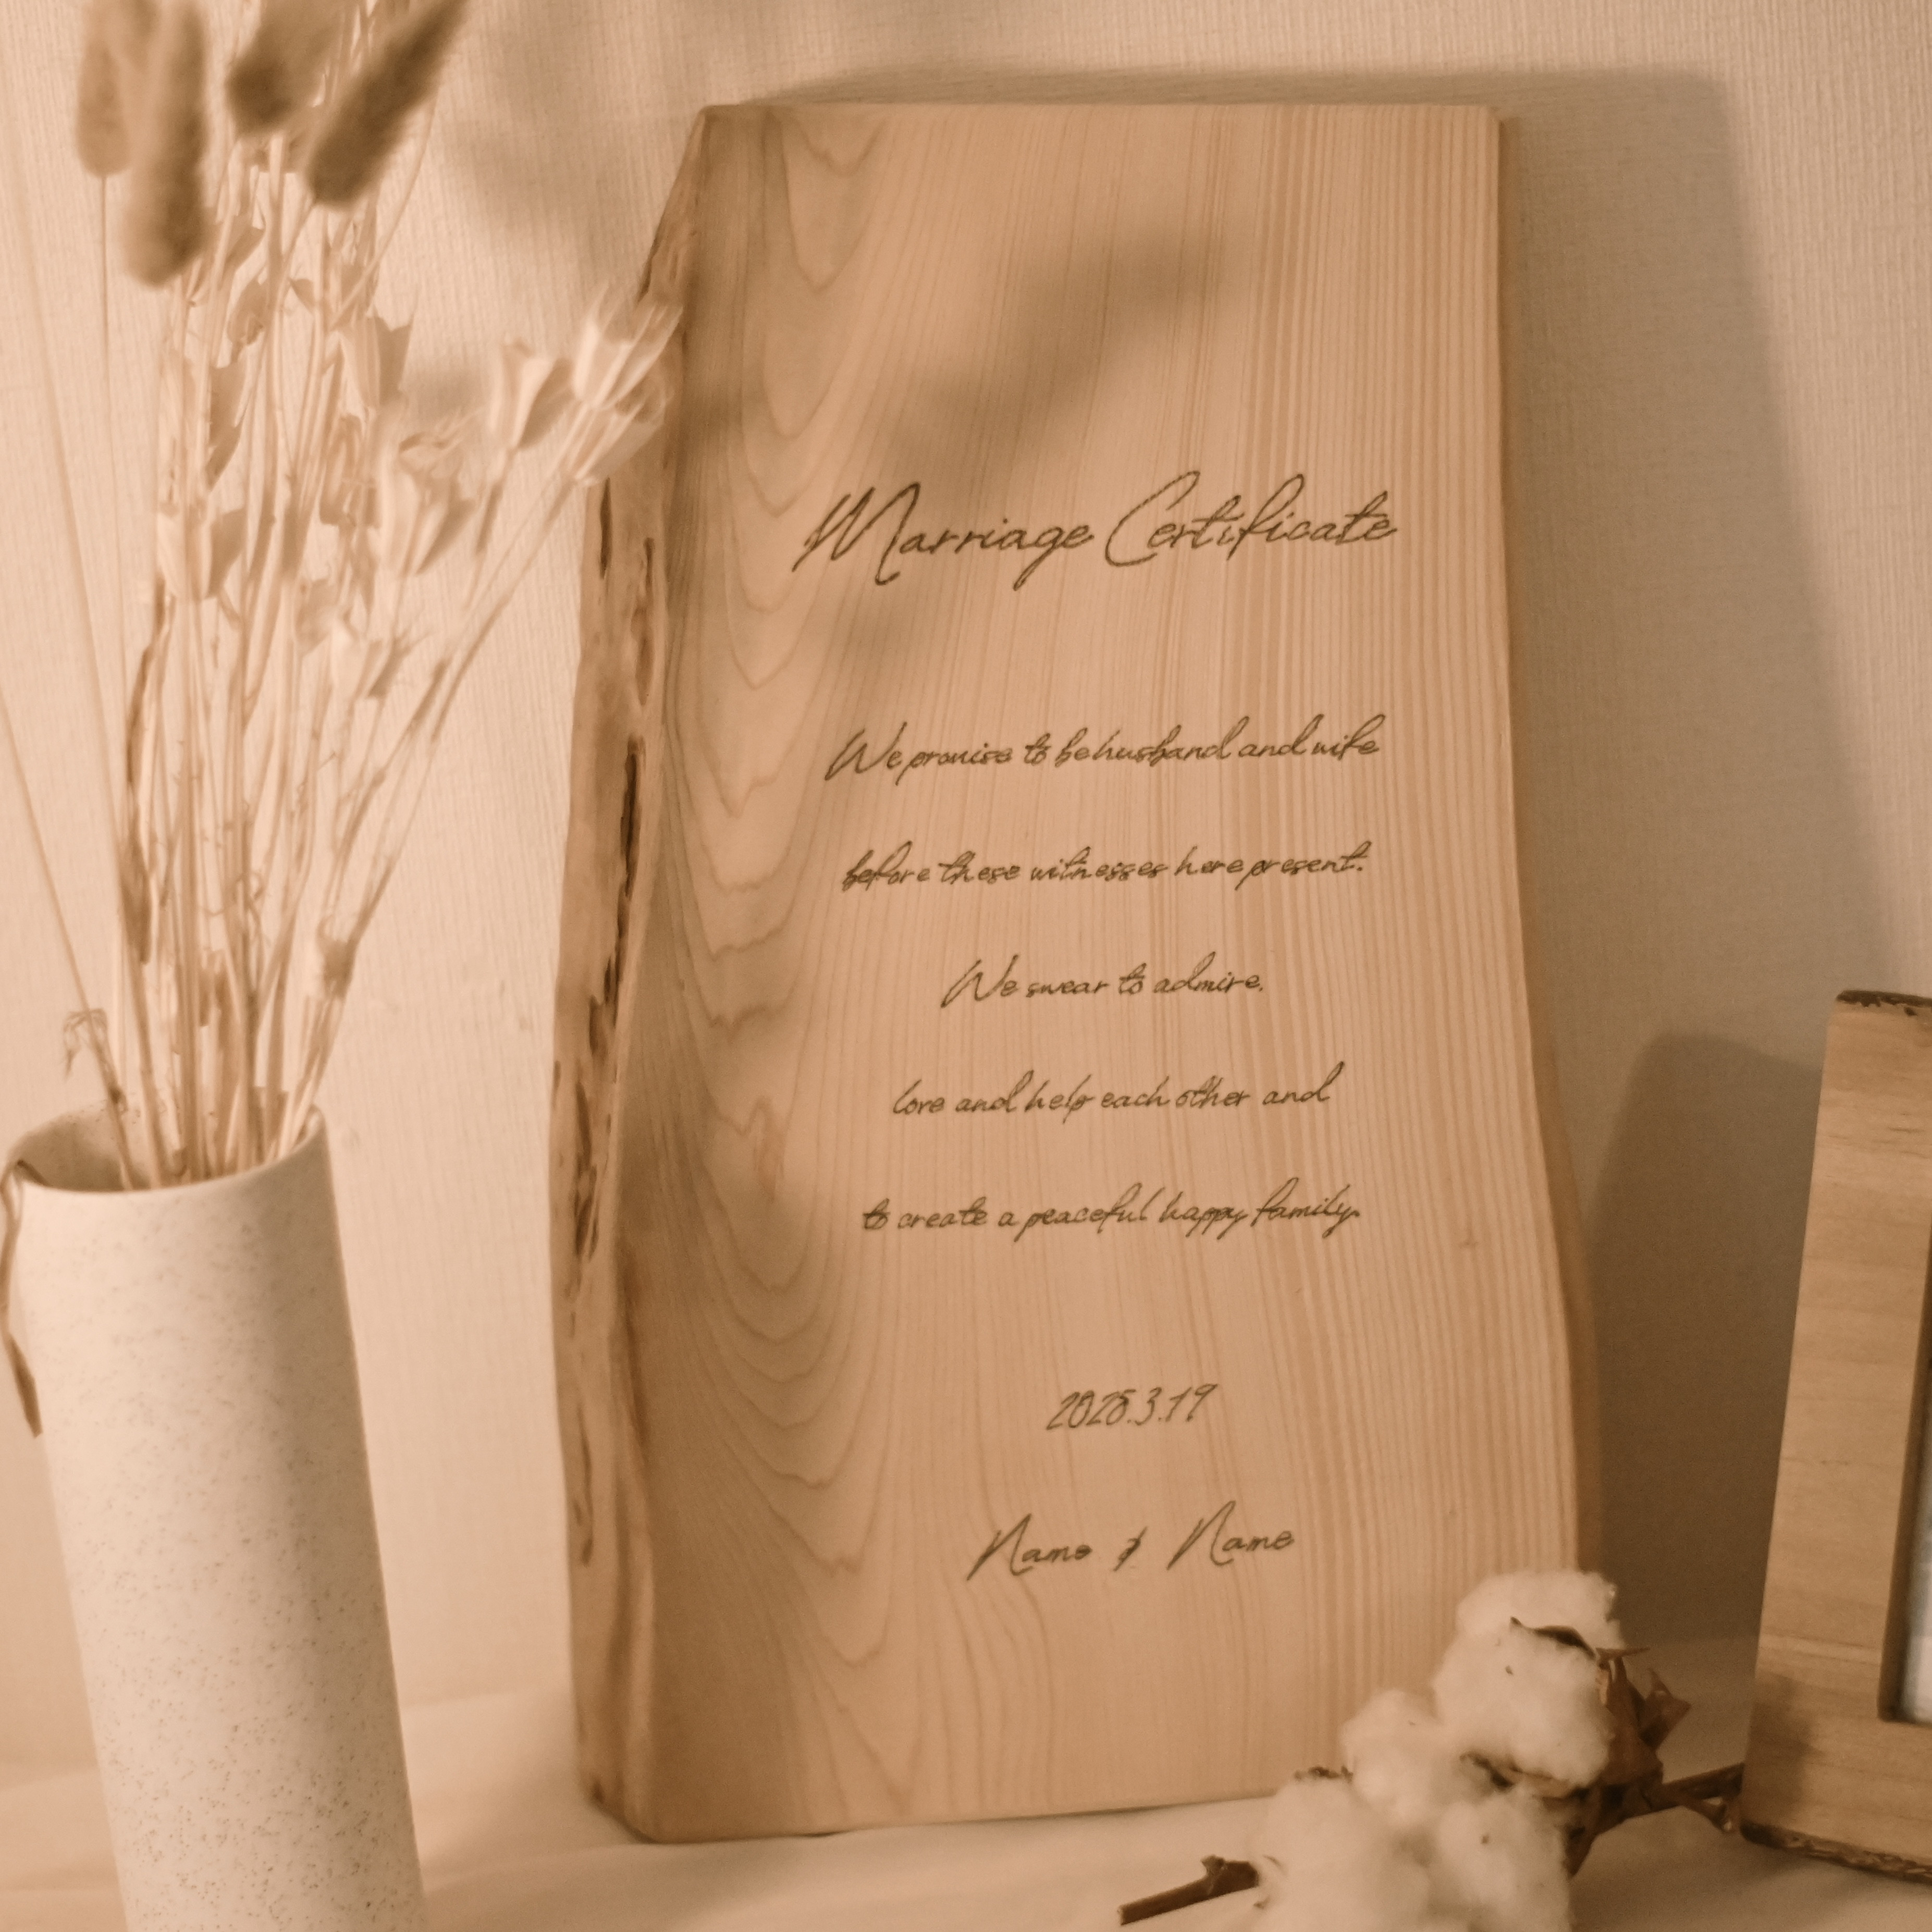 Marriage Certificate
We promise to be husband and wife
before these witnesses here present.
We swear to admire,
love and help each other and
to create a peaceful happy family.
2025.3.19
Name & Name